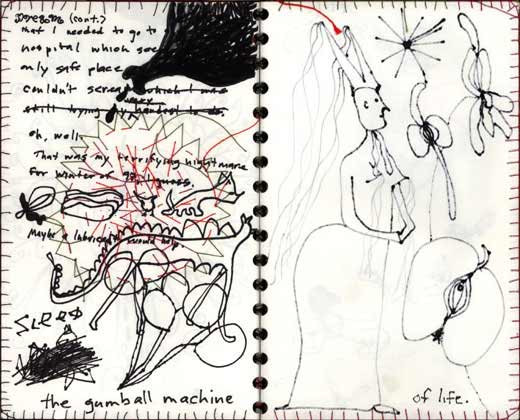 (cont.)
that I needed to go to
hospital which see
only safe place
couldn't scream which I was
still trying my hardest to do.
oh, well,
That was my terrifying nightmare
for winter of 99, I guess.
Maybe a lubricant would help.
SLEEP
the gumball machine
of life.